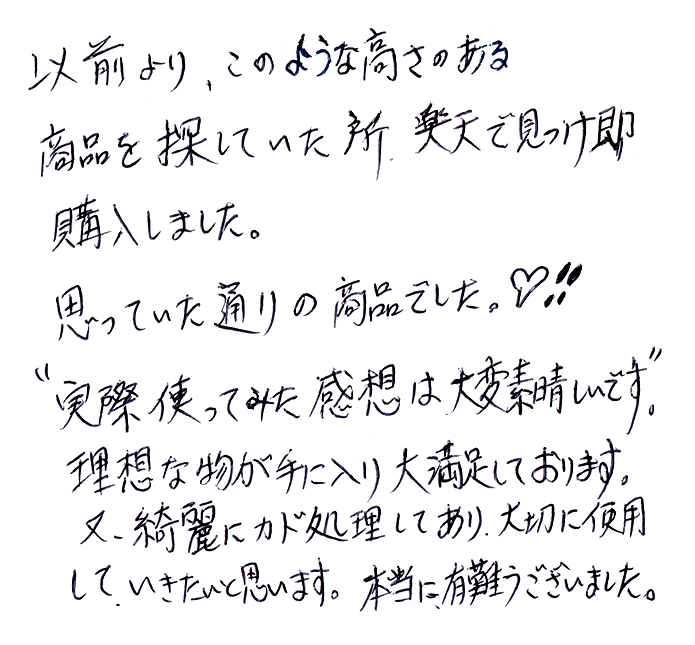 以前より、このような高さのある
商品を探していた所、楽天で見つけ即
購入しました。
思っていた通りの商品でした。♡!!
"実際使ってみた感想は大変素晴しいです"。
理想な物が手に入り大満足しております。
又、綺麗にカド処理してあり、大切に使用
して、いきたいと思います。本当に、有難うございました。